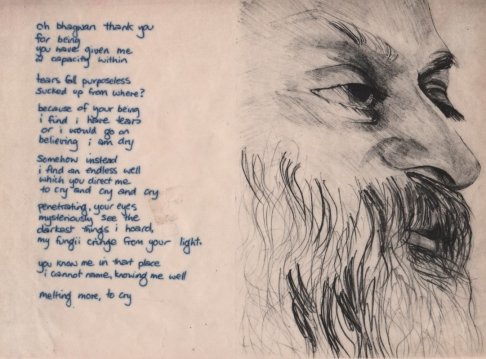 oh bhagwan thank you
for being
you have given me
capacity within
tears fall purposeless
sucked up from where?
because of your being
i find i have tears
or i would go on
believing i am dry
Somehow instead
i find an endless well
which you direct me
to cry and cry and cry
penetrating, your eyes
mysteriously see the
darkest things i hoard,
my fungii cringe from your light.
you know me in that place
i cannot name, knowing me well
melting more, to cry